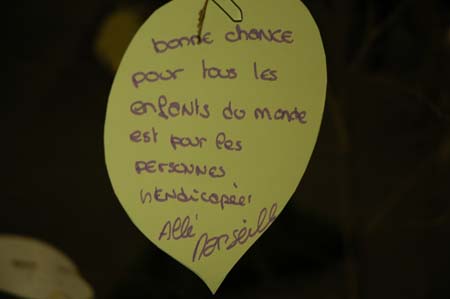 bonne chance
pour tous les
enfants du monde
est pour les
personnes
hendicapées
Allé Marseille